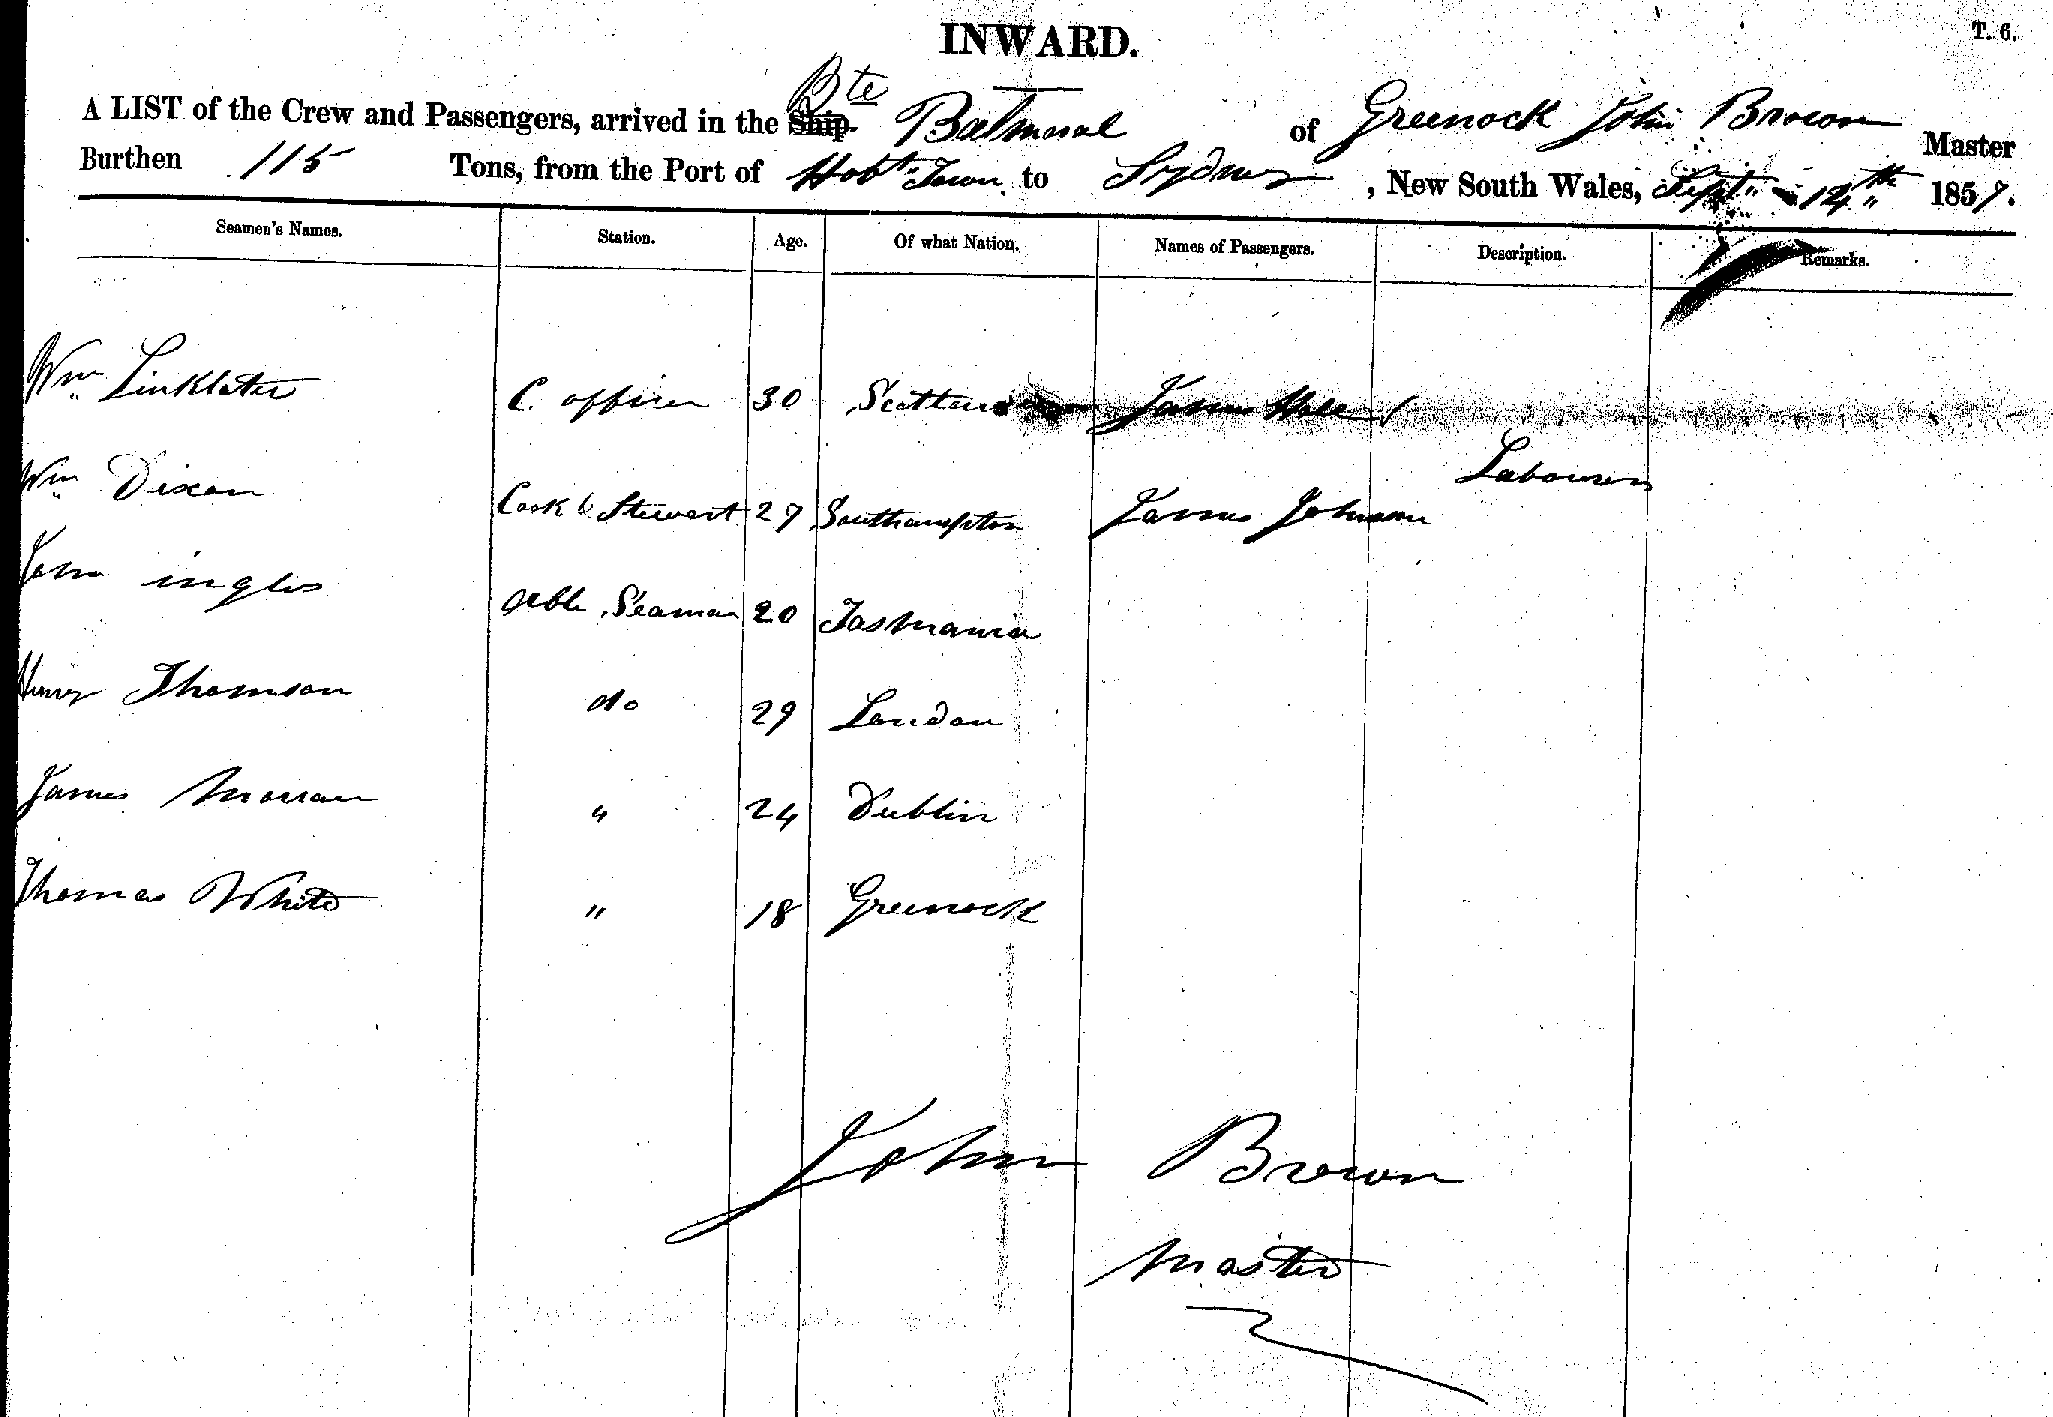 INWARD.
T. 6.
A LIST of the Crew and Passengers, arrived in the Ship Bte Balmoral of Greenock John Brown Master
Burthen 115 Tons, from the Port of Hobt. Town to Sydney, New South Wales, Septr 12th 1857.
Seamen's Names. Station. Age. Of what Nation. Names of Passengers. Description. Remarks.
Wm Linklater C. officer 30 Scotland James Hall
Labourers
Wm Dixon Cook & Stewart 27 Southampton James Johnson
John ingles Able Seaman 20 Tasmania
Henry Thomson do 29 London
James Morran " 24 Dublin
Thomas White " 18 Greenock
John Brown
Master